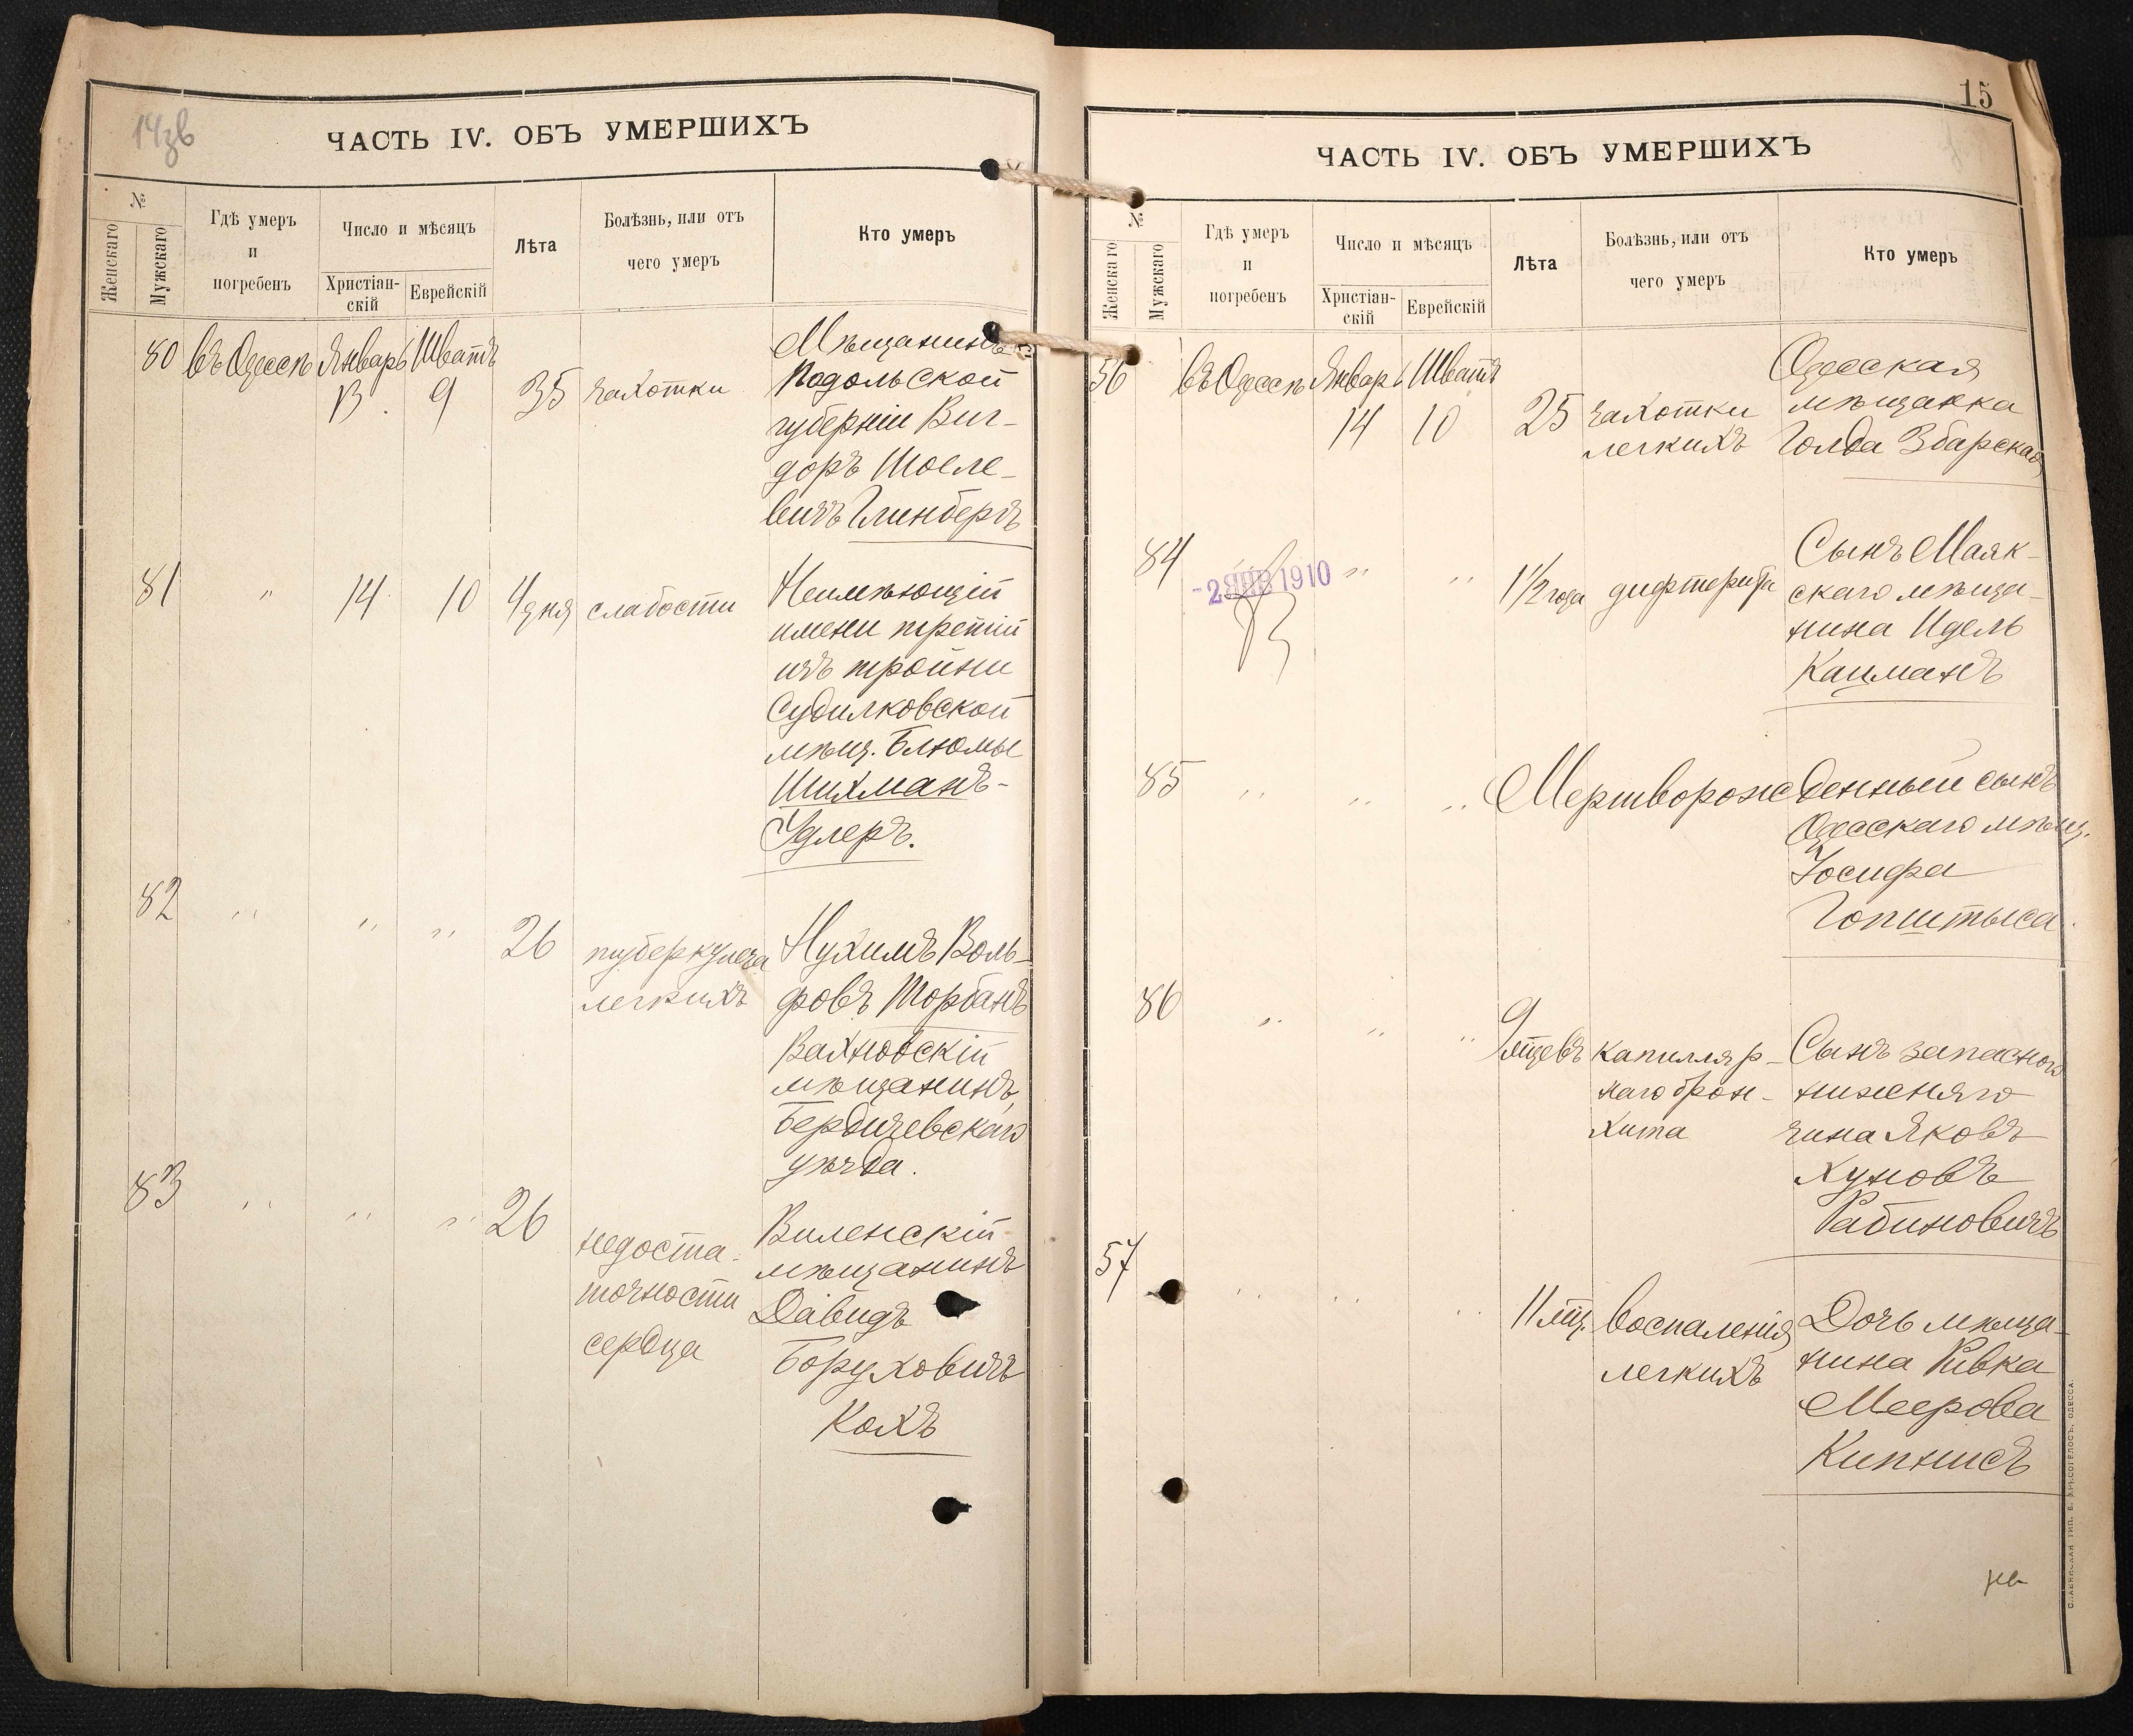 14зв
ЧАСТЬ IV. ОБЪ УМЕРШИХЪ
№
Женскаго
Мужскаго
Гдѣ умеръ
и
погребенъ
Число и мѣсяцъ
Христіан-
скій
Еврейскій
Лѣта
Болѣзнь, или отъ
чего умеръ
Кто умеръ
80 въ Одессѣ Январь Шватъ
13 9 35 чахотки
Мѣщанинъ
Подольской
губерніи Виг-
доръ Шоеле-
вичъ Глинбергъ
81 " 14 10 4 дня слабости
Неимѣющій
имени третій
изъ тройни
Судилковской
мѣщ. Блюмы
Шихманъ-
Удлеръ.
82 " " " 26 туберкулеза
легкихъ
Нухимъ Воль-
фовъ Торбанъ
Вахновскій
мѣщанинъ,
Бердичевскаго
уѣзда.
83 " " " 26 недоста-
точности
сердца
Виленскій
мѣщанинъ
Давидъ
Боруховичъ
Кохъ
15
ЧАСТЬ IV. ОБЪ УМЕРШИХЪ
№
Женскаго
Мужскаго
Гдѣ умеръ
и
погребенъ
Число и мѣсяцъ
Христіан-
скій
Еврейскій
Лѣта
Болѣзнь, или отъ
чего умеръ
Кто умеръ
56 въ Одессѣ Январь Шватъ
14 10 25 чахотки
легкихъ
Одесская
мѣщанка
Голда Збарская
84 " " 1 1/2 года дифтерита
-2 ЯНВ 1910
Сынъ Маяк-
скаго мѣща-
нина Идель
Кацманъ
85 " " " Мертворожденный сынъ
Одесскаго мѣщ.
Іосифа
Гопштыса.
86 " " " 9 мѣцевъ капилляр-
наго брон-
хита
Сынъ запаснаго
нижняго
чина Яковъ
Хуновъ
Рабиновичъ
57 " " " 11 мѣц. воспаленія
легкихъ
Дочь мѣща-
нина Ривка
Меерова
Кипнисъ
ОДЕССА.